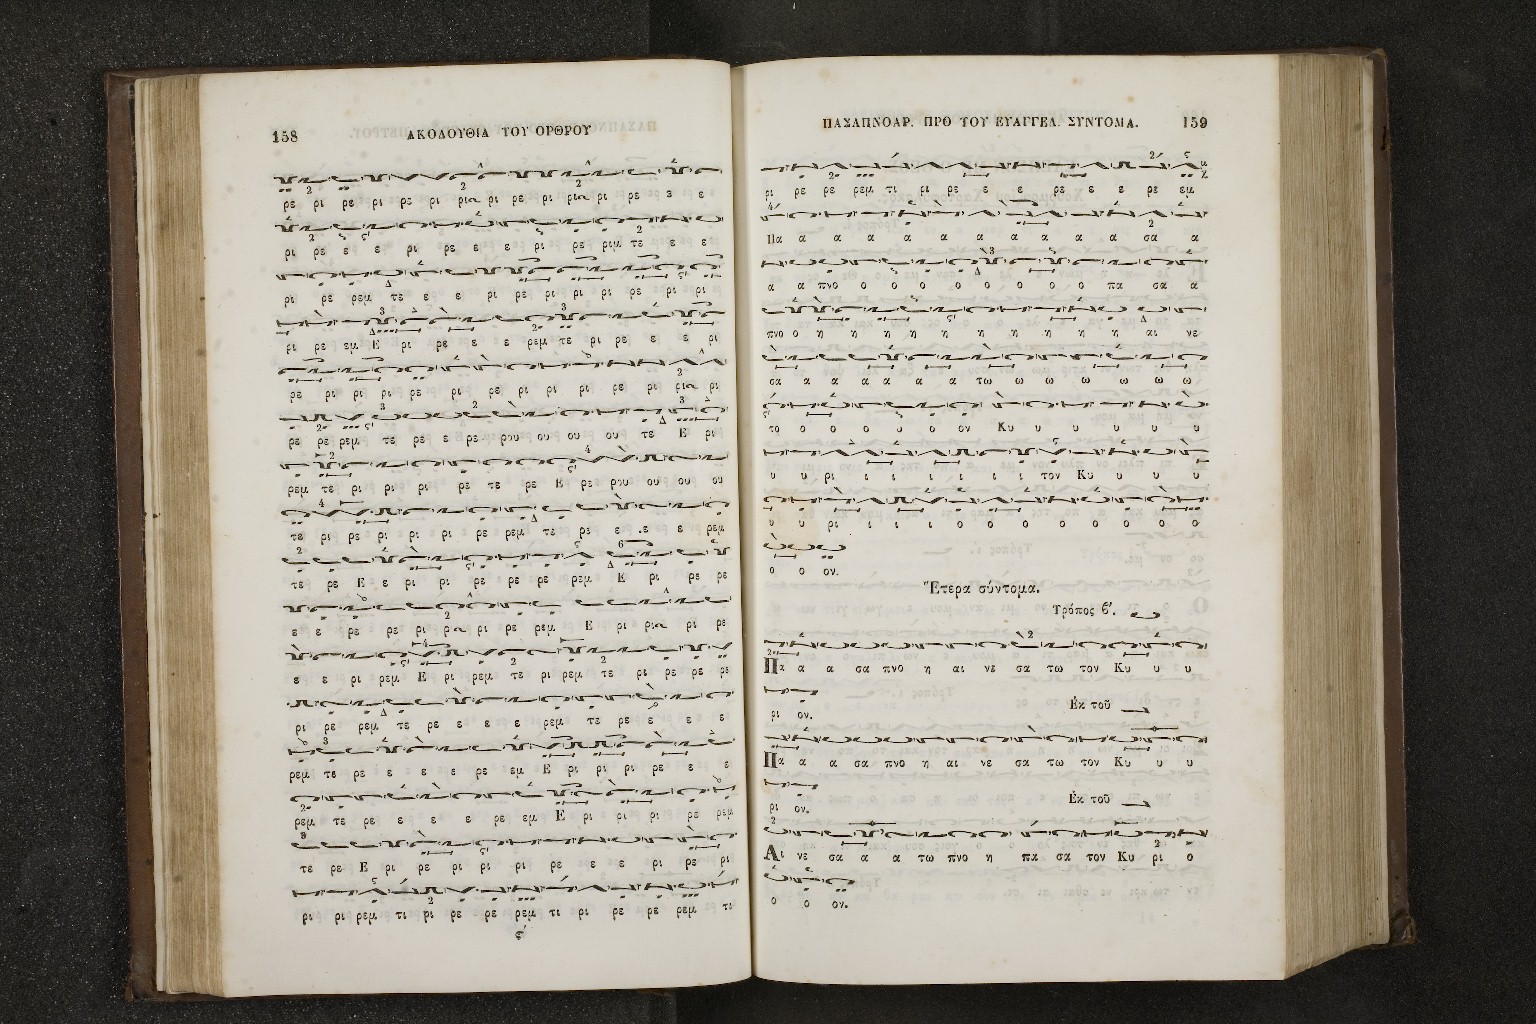 158
ΑΚΟΛΟΥΘΙΑ ΤΟΥ ΟΡΘΡΟΥ
ρε ρι ρε ρι ρε ρι ρια ρι ρε ρι ρια ρι ρε ε ε
ρι ρε ε ε ρι ρε ε ε ρι ρε ριμ τε ε ε
ρι ρε ρεμ τε ε ε ρι ρε ρι ρι ρι ρε ρι ρι
ρι ρε εμ Ε ρι ρε ε ε ρεμ τε ρι ρε ε ε ρι
ρε ρι ρι ρι ρε ρι ρε ρι ρι ρε ρι ρια ρι
ρε ρε ρεμ τε ρε ε ρε ρου ου ου ου τε Ε ρι
ρεμ τε ρι ρι ρι ρε τε ρε Ε ρε ρου ου ου ου
τε ρι ρε ρι ρι ρι ρε ρεμ τε ρε ε ε ε ρεμ
τε ρε Ε ε ρι ρι ρε ρε ρε ρεμ Ε ρι ρε ρε
ε ε ρε ρε ρι ρια ρι ρε ρεμ Ε ρι ρια ρι ρε
ε ε ρι ρεμ Ε ρι ρεμ τε ρι ρεμ τε ρι ρε ρε ρε
ρι ρε ρεμ τε ρε ε ε ε ρεμ τε ρε ε ε ε
ρεμ τε ρε ε ε ε ρε εμ Ε ρι ρι ρι ρε ε ε
ρεμ τε ρε ε ε ε ρε εμ Ε ρι ρι ρι ρε ρεμ
τε ρε Ε ρι ρε ρι ρι ρε ε ε ρι ρε ρι
ρι ρι ρεμ τι ρι ρε ρε ρεμ τι ρι ρε ρε ρεμ τι
ΠΑΣΑΠΝΟΑΡ. ΠΡΟ ΤΟΥ ΕΥΑΓΓΕΛ. ΣΥΝΤΟΜΑ.
159
ρι ρε ρε ρεμ τι ρι ρε ε ε ρε ε ε ρε εμ
Πα α α α α α α α α α α σα α
α α πνο ο ο ο ο ο ο ο ο πα σα α
πνο ο η η η η η η η η η αι νε
σα α α α α α α τω ω ω ω ω ω ω
το ο ο ο ο ο ον Κυ υ υ υ υ υ
υ υ ρι ι ι ι ι ι ι τον Κυ υ υ υ
υ υ ρι ι ι ι ο ο ο ο ο ο ο ο
ο ο ον.
Ἕτερα σύντομα.
Τρόπος ϐʹ.
Πα α α σα πνο η αι νε σα τω τον Κυ υ υ
ρι ον.
Ἐκ τοῦ
Πα α α σα πνο η αι νε σα τω τον Κυ υ υ
ρι ον.
Ἐκ τοῦ
Αι νε σα α α τω πνο η πα σα τον Κυ ρι ο
ο ο ον.